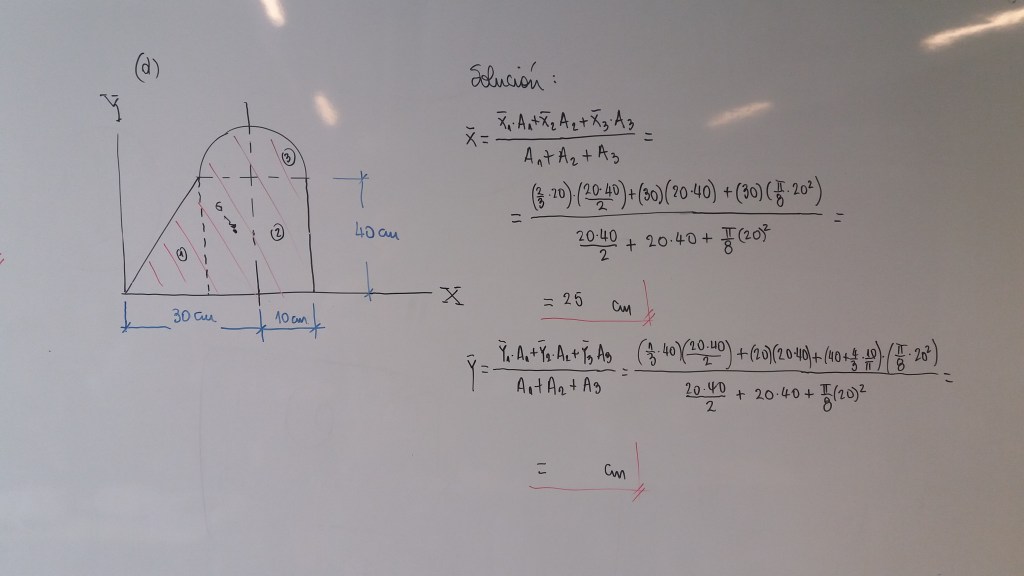 (d)
Y
③
G
②
①
40 cm
X
30 cm
10 cm
Solución:
X̄ = (X̄₁·A₁+X̄₂A₂+X̄₃·A₃)/(A₁+A₂+A₃) =
= ((2/3·20)·(20·40/2)+(30)(20·40)+(30)(π/8·20²))/(20·40/2 + 20·40+π/8(20)²) =
= 25 cm
Ȳ = (Ȳ₁·A₁+Ȳ₂·A₂+Ȳ₃A₃)/(A₁+A₂+A₃) = ((1/3·40)(20·40/2)+(20)(20·40)+(40+4/3·10/π)·(π/8·20²))/(20·40/2 + 20·40+π/8(20)²) =
= cm